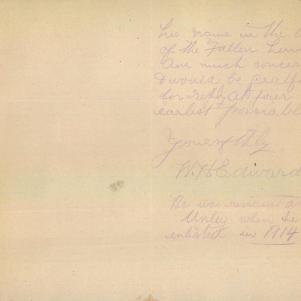 his name in the l
of the Fallen
am much concer
would be
for reply at your
earliest possible
Yours
W. H. Edward
He was resident a
Unley when he
enlisted in 1914